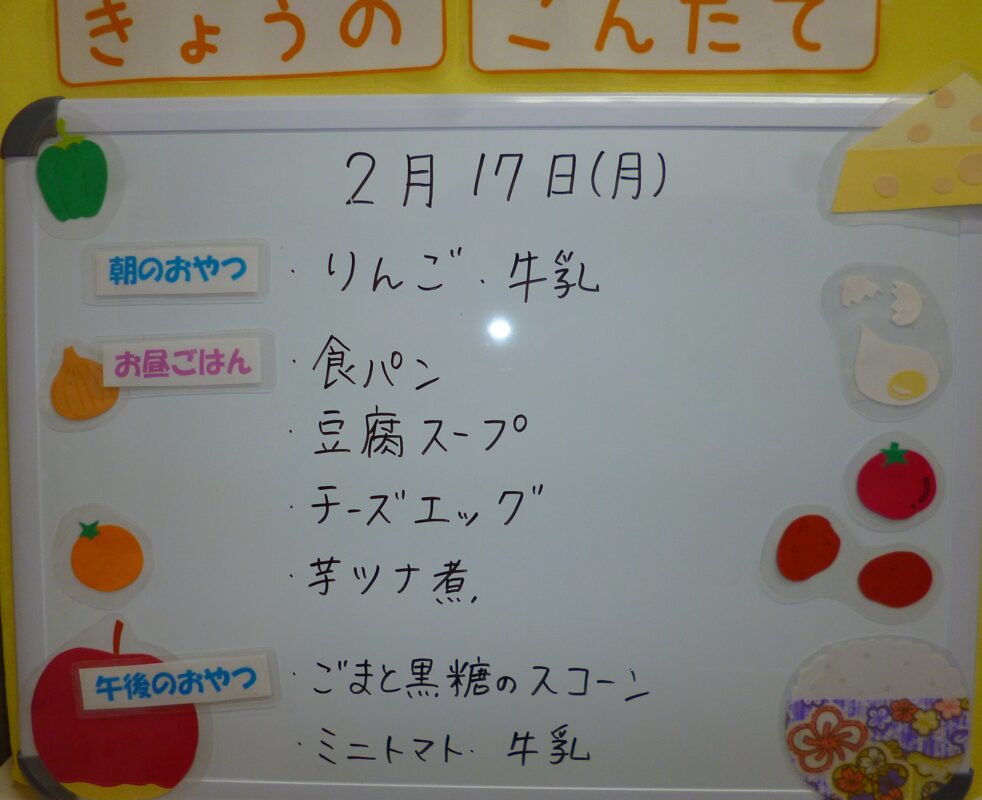 きょうの こんだて
2月17日(月)
朝のおやつ ・りんご・牛乳
お昼ごはん ・食パン
・豆腐スープ
・チーズエッグ
・芋ツナ煮
午後のおやつ ・ごまと黒糖のスコーン
・ミニトマト・牛乳